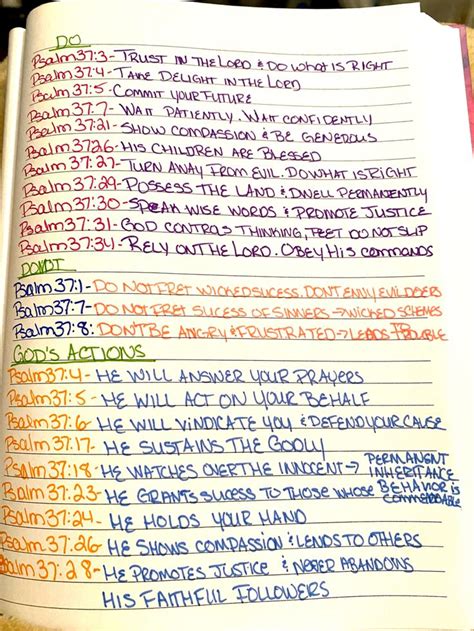 DO
Psalm 37:3- TRUST IN THE LORD & DO WHAT IS RIGHT
Psalm 37:4- TAKE DELIGHT IN THE LORD
Psalm 37:5- COMMIT YOUR FUTURE
Psalm 37:7- WAIT PATIENTLY. WAIT CONFIDENTLY
Psalm 37:21- SHOW COMPASSION & BE GENEROUS
Psalm 37:26- HIS CHILDREN ARE BLESSED
Psalm 37:27- TURN AWAY FROM EVIL. DO WHAT IS RIGHT
Psalm 37:29- POSSESS THE LAND & DWELL PERMANENTLY
Psalm 37:30- SPEAK WISE WORDS & PROMOTE JUSTICE
Psalm 37:31- GOD CONTROLS THINKING, FEET DO NOT SLIP
Psalm 37:34- RELY ON THE LORD. OBEY HIS COMMANDS
DON'T
Psalm 37:1- DO NOT FRET WICKED SUCESS. DONT ENVY EVILDOERS
Psalm 37:7- DO NOT FRET SUCESS OF SINNERS → WICKED SCHEMES
Psalm 37:8: DON'T BE ANGRY & FRUSTRATED → LEADS TO TROUBLE
GOD'S ACTIONS
Psalm 37:4- HE WILL ANSWER YOUR PRAYERS
Psalm 37:5- HE WILL ACT ON YOUR BEHALF
Psalm 37:6- HE WILL VINDICATE YOU & DEFEND YOUR CAUSE
Psalm 37:17- HE SUSTAINS THE GODLY
Psalm 37:18- HE WATCHES OVER THE INNOCENT → PERMANENT INHERITANCE
Psalm 37:23- HE GRANTS SUCESS TO THOSE WHOSE BEHAVIOR IS COMMENDABLE
Psalm 37:24- HE HOLDS YOUR HAND
Psalm 37:26- HE SHOWS COMPASSION & LENDS TO OTHERS
Psalm 37:28- HE PROMOTES JUSTICE & NEVER ABANDONS
HIS FAITHFUL FOLLOWERS